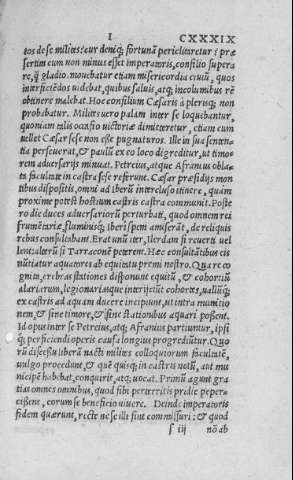 I CXXXIX
tos de se milites? cur deniq; fortunā periclitaretur? præ
sertim cum non minus esset imperatoris, consilio supera
re, q̃ gladio. mouebatur etiam misericordia ciuiũ, quos
interficiēdos uidebat, quibus saluis, atq; incolumibus rē
obtinere malebat. Hoc consilium Cæsaris à plerisq; non
probabatur. Milites uero palam inter se loquebantur,
quoniam talis occasio uictoriæ dimitteretur, etiam cum
uellet Cæsar sese non esse pugnaturos. Ille in sua senten-
tia perseuerat, & paulũ ex eo loco digreditur, ut timo-
rem aduersarijs minuat. Petreius, atque Afranius obla
ta facultate in castra sese referunt. Cæsar præsidijs mon
tibus dispositis, omni ad Iberũ intercluso itinere, quàm
proxime potest hostium castris castra communit. Poste
ro die duces aduersariorũ perturbati, quod omnem rei
frumētariæ, fluminisq; Iberi spem amiserãt, de reliquis
rebus consultabant. Erat unũ iter, Ilerdam si reuerti uel
lent: alterũ si Tarraconē peterent. Hæc consultãtibus eis
nũtiatur aquatores ab equitatu premi nostro. Qua re co
gnita, crebras stationes disponunt equitũ, & cohortiũ
alariarum, legionariasque interijciũt cohortes, uallũq;
ex castris ad aquam ducere incipiunt, ut intra munitio
nem, & sine timore, & sine stationibus aquari possent.
Id opus inter se Petreius, atq; Afranius partiuntur, ipsi
q; perficiendi operis causa longius progrediũtur. Quo
rũ discessu liberã nacti milites colloquiorum facultatē,
uulgo procedunt, & quē quisq; in castris notũ, aut mu
nicipē habebat, conquirit, atq; uocat. Primũ agunt gra
tias omnes omnibus, quod sibi perterritis pridie peper-
cissent, eorum se beneficio uiuere. Deinde imperatoris
fidem quærunt, recte ne se illi sint commissuri: & quod
s iij nō ab